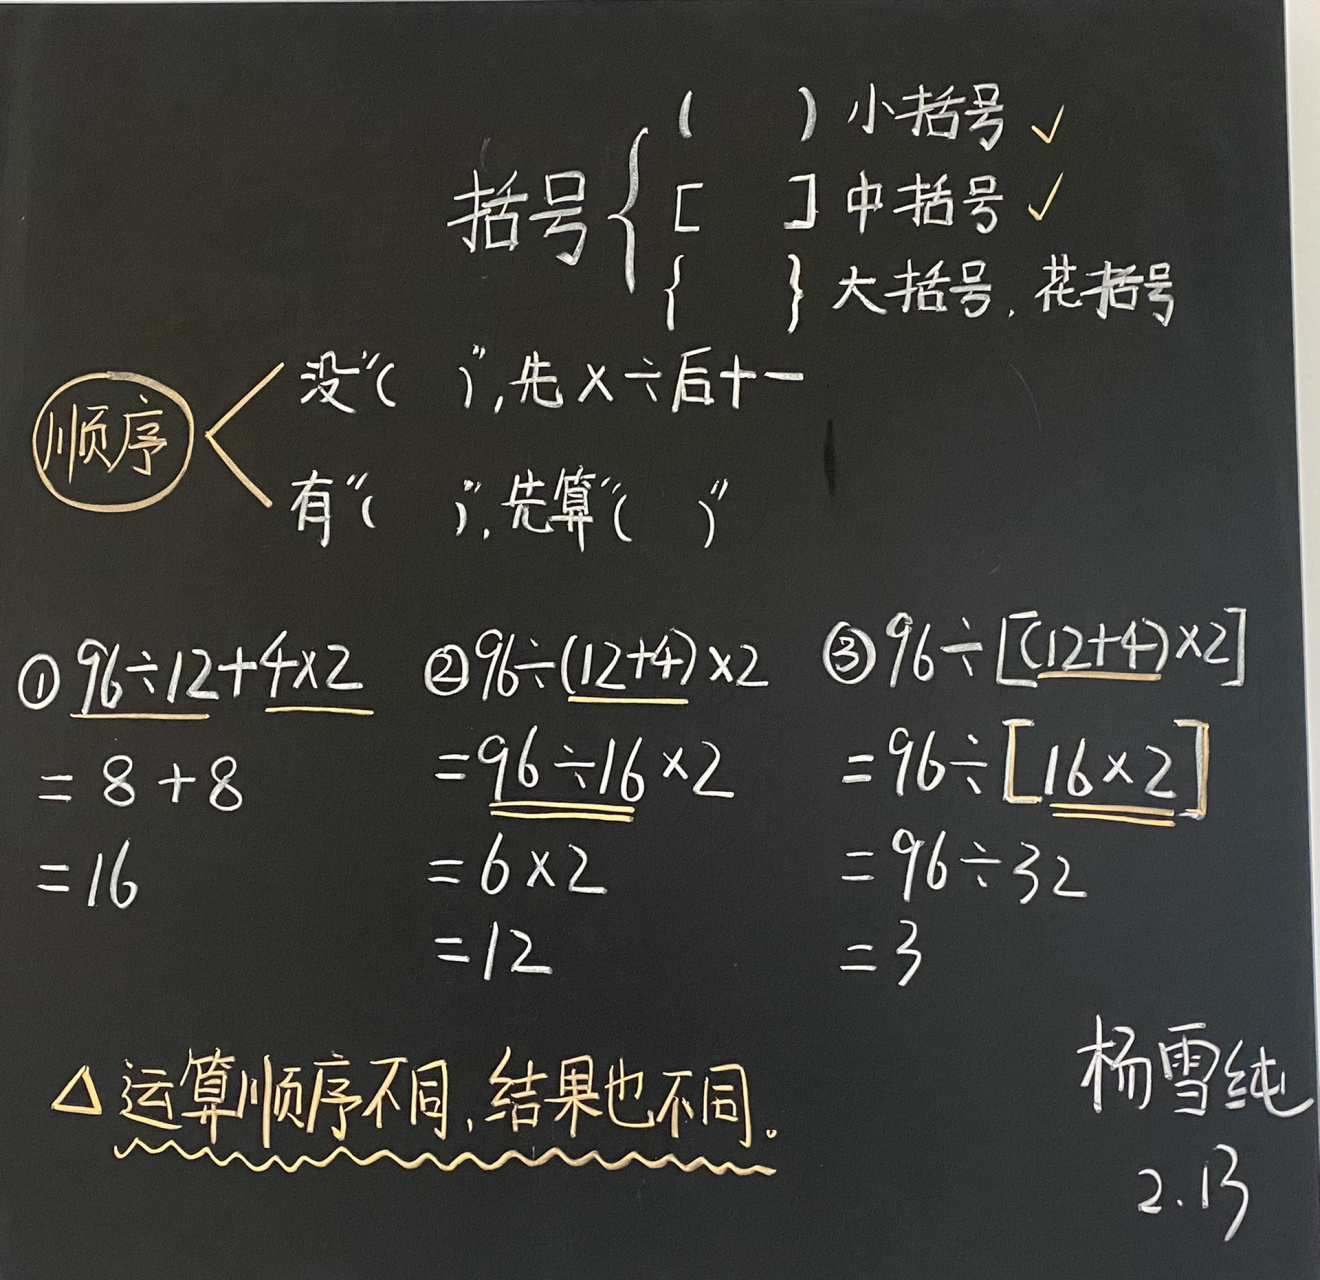 括号{( )小括号✓
[ ]中括号✓
{ }大括号,花括号
顺序
没“( )”,先×÷后+-
有“( )”,先算“( )”
①96÷12+4×2
=8+8
=16
②96÷(12+4)×2
=96÷16×2
=6×2
=12
③96÷[(12+4)×2]
=96÷[16×2]
=96÷32
=3
△运算顺序不同,结果也不同。
杨雪纯
2.13